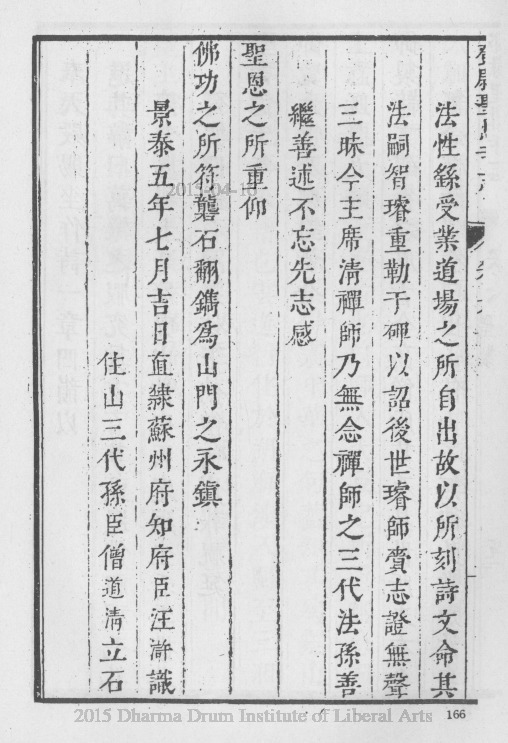 鄧尉聖恩寺志
法性繇受業道場之所自出故以所刻詩文命其
法嗣智璿重勒于碑以詔後世璿師賫志證無聲
三昧今主席清禪師乃無念禪師之三代法孫善
繼善述不忘先志感
聖恩之所重仰
佛功之所符礱石翻鐫爲山門之永鎮
景泰五年七月吉日直隸蘇州府知府臣汪滸識
住山三代孫臣僧道清立石
2015-04-10
2015 Dharma Drum Institute of Liberal Arts
166